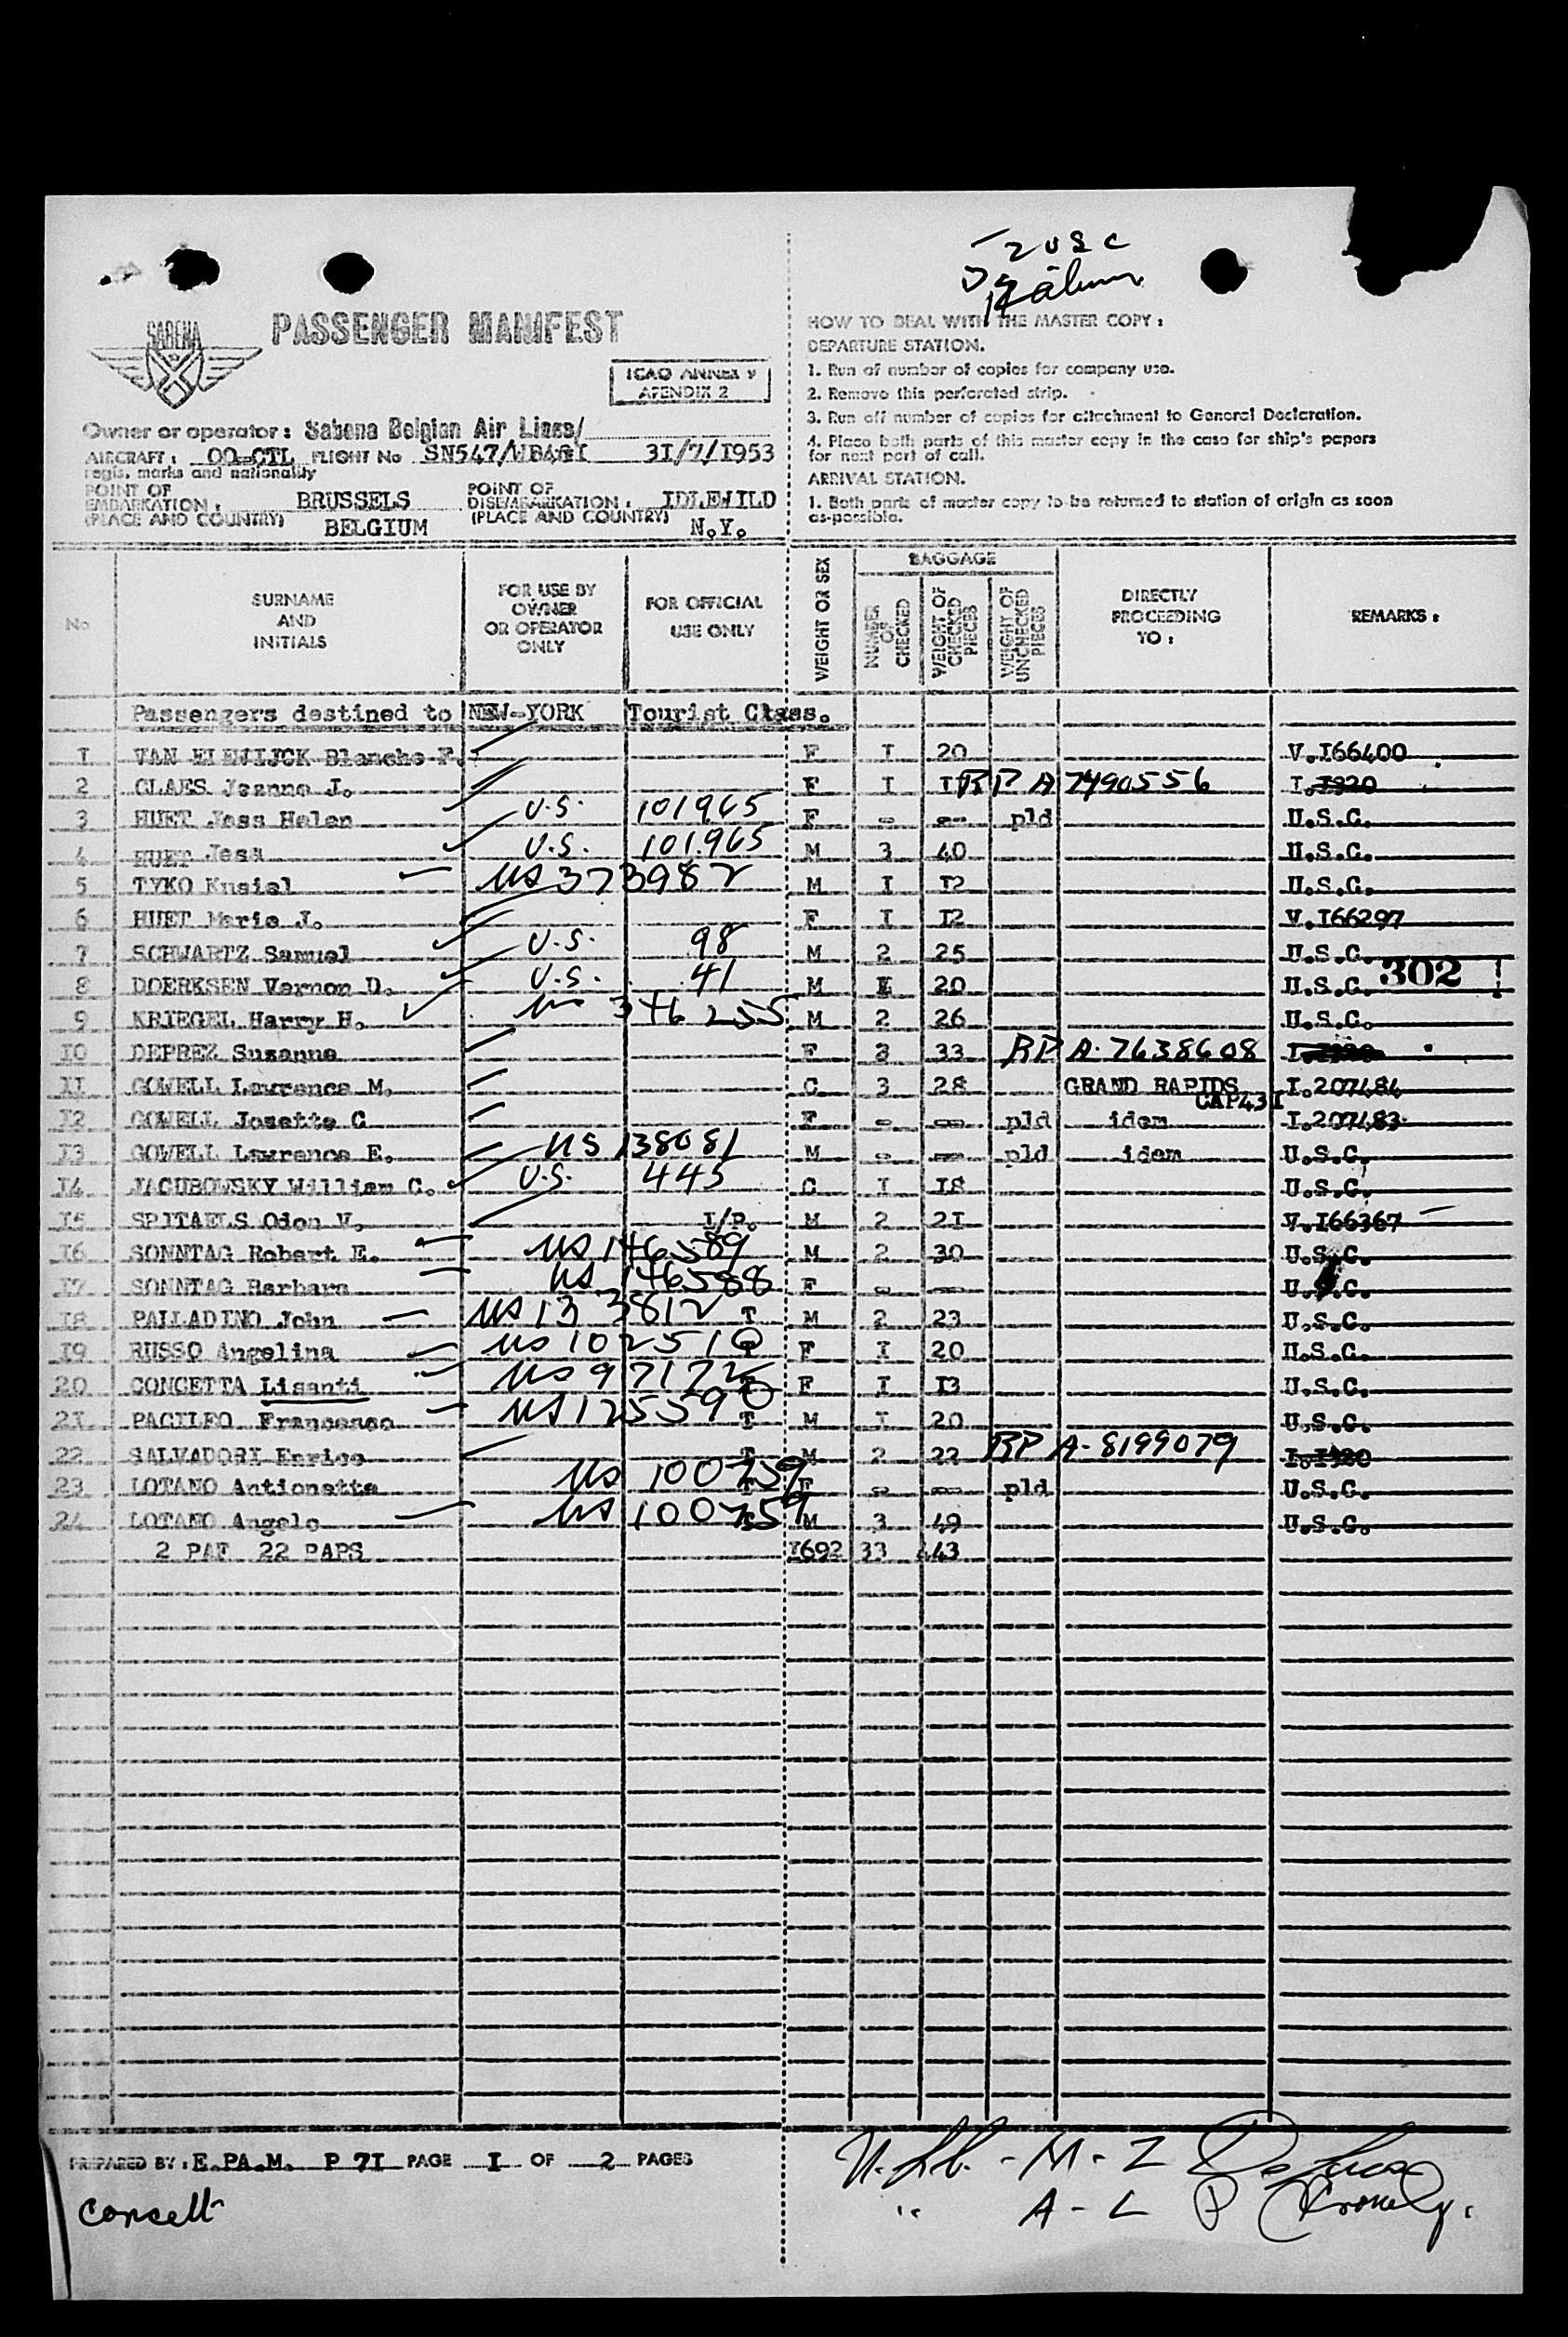 2 USC
SABENA
PASSENGER MANIFEST
ICAO ANNEX 9
APENDIX 2
Owner or operator : Sabena Belgian Air Lines/
AIRCRAFT : OO-CTL FLIGHT No SN547/ 31/7/1953
regis. marks and nationality
POINT OF EMBARKATION : BRUSSELS POINT OF DISEMBARKATION : IDLEWILD
(PLACE AND COUNTRY) BELGIUM (PLACE AND COUNTRY) N.Y.
HOW TO DEAL WITH THE MASTER COPY :
DEPARTURE STATION.
1. Run of number of copies for company use.
2. Remove this perforated strip.
3. Run off number of copies for attachment to General Declaration.
4. Place both parts of this master copy in the case for ship's papers
for next port of call.
ARRIVAL STATION.
1. Both parts of master copy to be returned to station of origin as soon
as possible.
No SURNAME AND INITIALS FOR USE BY OWNER OR OPERATOR ONLY FOR OFFICIAL USE ONLY WEIGHT OR SEX BAGGAGE NUMBER OF CHECKED WEIGHT OF CHECKED PIECES WEIGHT OF UNCHECKED PIECES DIRECTLY PROCEEDING TO : REMARKS :
Passengers destined to NEW-YORK Tourist Class.
1 VAN ELEWIJCK Blanche F. F I 20 V.I66400
2 CLAES Jeanne J. F I RP A 7490556 I.I320
3 HUET Jess Helen U.S. 101965 F - -- pld U.S.C.
4 HUET Jess U.S. 101.965 M 3 40 U.S.C.
5 TYKO Kusiel US 373982 M I I2 U.S.C.
6 HUET Marie J. F I I2 V.I66297
7 SCHWARTZ Samuel U.S. 98 M 2 25 U.S.C.
8 DOERKSEN Vernon D. U.S. 41 M I 20 U.S.C. 302
9 KRIEGEL Harry H. US 346255 M 2 26 U.S.C.
I0 DEPREZ Suzanne F 3 33 RP A-7638608
II GOWELL Lawrence M. C 3 28 GRAND RAPIDS I.207484
CAP43I
I2 GOWELL Josette C F - -- pld idem I.207483
I3 GOWELL Lawrence E. US 138081 M - -- pld idem U.S.C.
I4 JACUBOWSKY William C. U.S. 445 C I I8 U.S.C.
I5 SPITAELS Odon V. I/P. M 2 2I V.I66367
I6 SONNTAG Robert E. US 146589 M 2 30 U.S.C.
I7 SONNTAG Barbara US 146588 F - -- U.S.C.
I8 PALLADINO John US 133812 T M 2 23 U.S.C.
I9 RUSSO Angelina US 102510 T F I 20 U.S.C.
20 CONCETTA Lisanti US 97172 F I I3 U.S.C.
2I PACILEO Francesco US 125590 T M I 20 U.S.C.
22 SALVADORI Enrico T M 2 22 RP A-8199079 I.I320
23 LOTANO Antionette US 100759 F - -- pld U.S.C.
24 LOTANO Angelo US 100759 M 3 49 U.S.C.
2 PAF 22 PAPS I692 33 443
PREPARED BY : E.PA.M. P 7I PAGE I OF 2 PAGES
M - Z
A - L